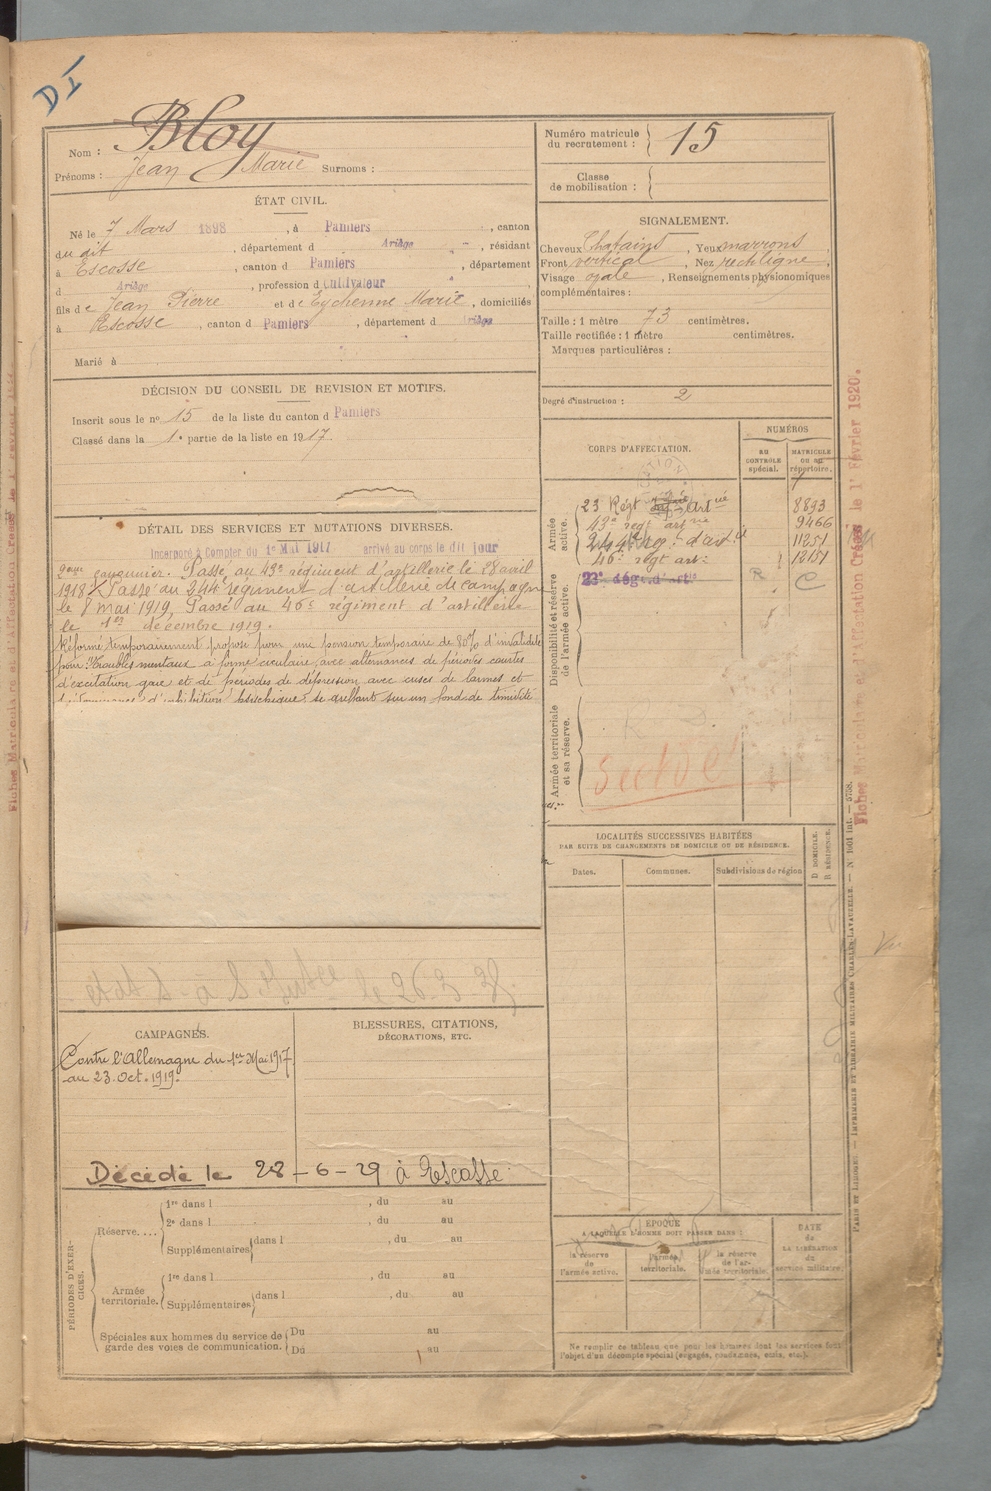 DI
Nom : Bloy
Prénoms : Jean Marie Surnoms :
ÉTAT CIVIL.
Né le 7 Mars 1898, à Pamiers, canton
du dit, département d Ariège, résidant
à Escosse, canton d Pamiers, département
d Ariège, profession d Cultivateur,
fils de Jean Pierre et de Eychenne Marie, domiciliés
à Escosse, canton d Pamiers, département d Ariège
Marié à
DÉCISION DU CONSEIL DE REVISION ET MOTIFS.
Inscrit sous le no 15 de la liste du canton d Pamiers
Classé dans la 1e partie de la liste en 1917.
DÉTAIL DES SERVICES ET MUTATIONS DIVERSES.
Incorporé à Compter du 1er Mai 1917 arrivé au corps le dit jour
2eme canonnier. Passé au 43e régiment d'artillerie le 28 avril
1918 Passé au 244e régiment d'artillerie de campagne
le 8 mai 1919. Passé au 46e régiment d'artillerie
le 1er décembre 1919.
Réformé temporairement proposé pour une pension temporaire de 80% d'invalidité
pour : Troubles mentaux à forme circulaire, avec alternances de périodes courtes
d'excitation gaie et de périodes de dépression avec crises de larmes et
d'inhibition psychique se greffant sur un fond de timidité
état S à S le 26 3
CAMPAGNES.
Contre l'Allemagne du 1er Mai 1917
au 23 Oct. 1919.
BLESSURES, CITATIONS,
DÉCORATIONS, ETC.
Décédé le 28-6-29 à Escosse
PÉRIODES D'EXERCICES.
Réserve....
1re dans l , du au
2e dans l , du au
Supplémentaires dans l du au
Armée territoriale.
1re dans l , du au
Supplémentaires dans l , du au
Spéciales aux hommes du service de garde des voies de communication.
Du au
Du au
Numéro matricule du recrutement : 15
Classe de mobilisation :
SIGNALEMENT.
Cheveux Chatains, Yeux marrons,
Front vertical, Nez rectiligne,
Visage ovale, Renseignements physionomiques
complémentaires :
Taille : 1 mètre 73 centimètres.
Taille rectifiée : 1 mètre centimètres.
Marques particulières :
Degré d'instruction : 2
CORPS D'AFFECTATION.
NUMÉROS
AU CONTRÔLE spécial.
MATRICULE OU AU répertoire.
Armée active.
23 Régt Artie 8893
43e régt artie 9466
244e rég. d'art 11251
46e régt art: 12151
Disponibilité et réserve de l'armée active.
23e dégt d'artie R C
Armée territoriale et sa réserve.
LOCALITÉS SUCCESSIVES HABITÉES
PAR SUITE DE CHANGEMENTS DE DOMICILE OU DE RÉSIDENCE.
Dates. Communes. Subdivisions de région
D DOMICILE.
R RÉSIDENCE.
ÉPOQUE
A LAQUELLE L'HOMME DOIT PASSER DANS :
la réserve de l'armée active.
l'armée territoriale.
la réserve de l'armée territoriale.
DATE de LA LIBÉRATION du service militaire.
Ne remplir ce tableau que pour les hommes dont les services font
l'objet d'un décompte spécial (engagés, omis, etc.).
PARIS ET LIMOGES. — IMPRIMERIE ET LIBRAIRIE MILITAIRES CHARLES-LAVAUZELLE.
Fiches Matricule et d'Affectation Créées le 1er Février 1920.